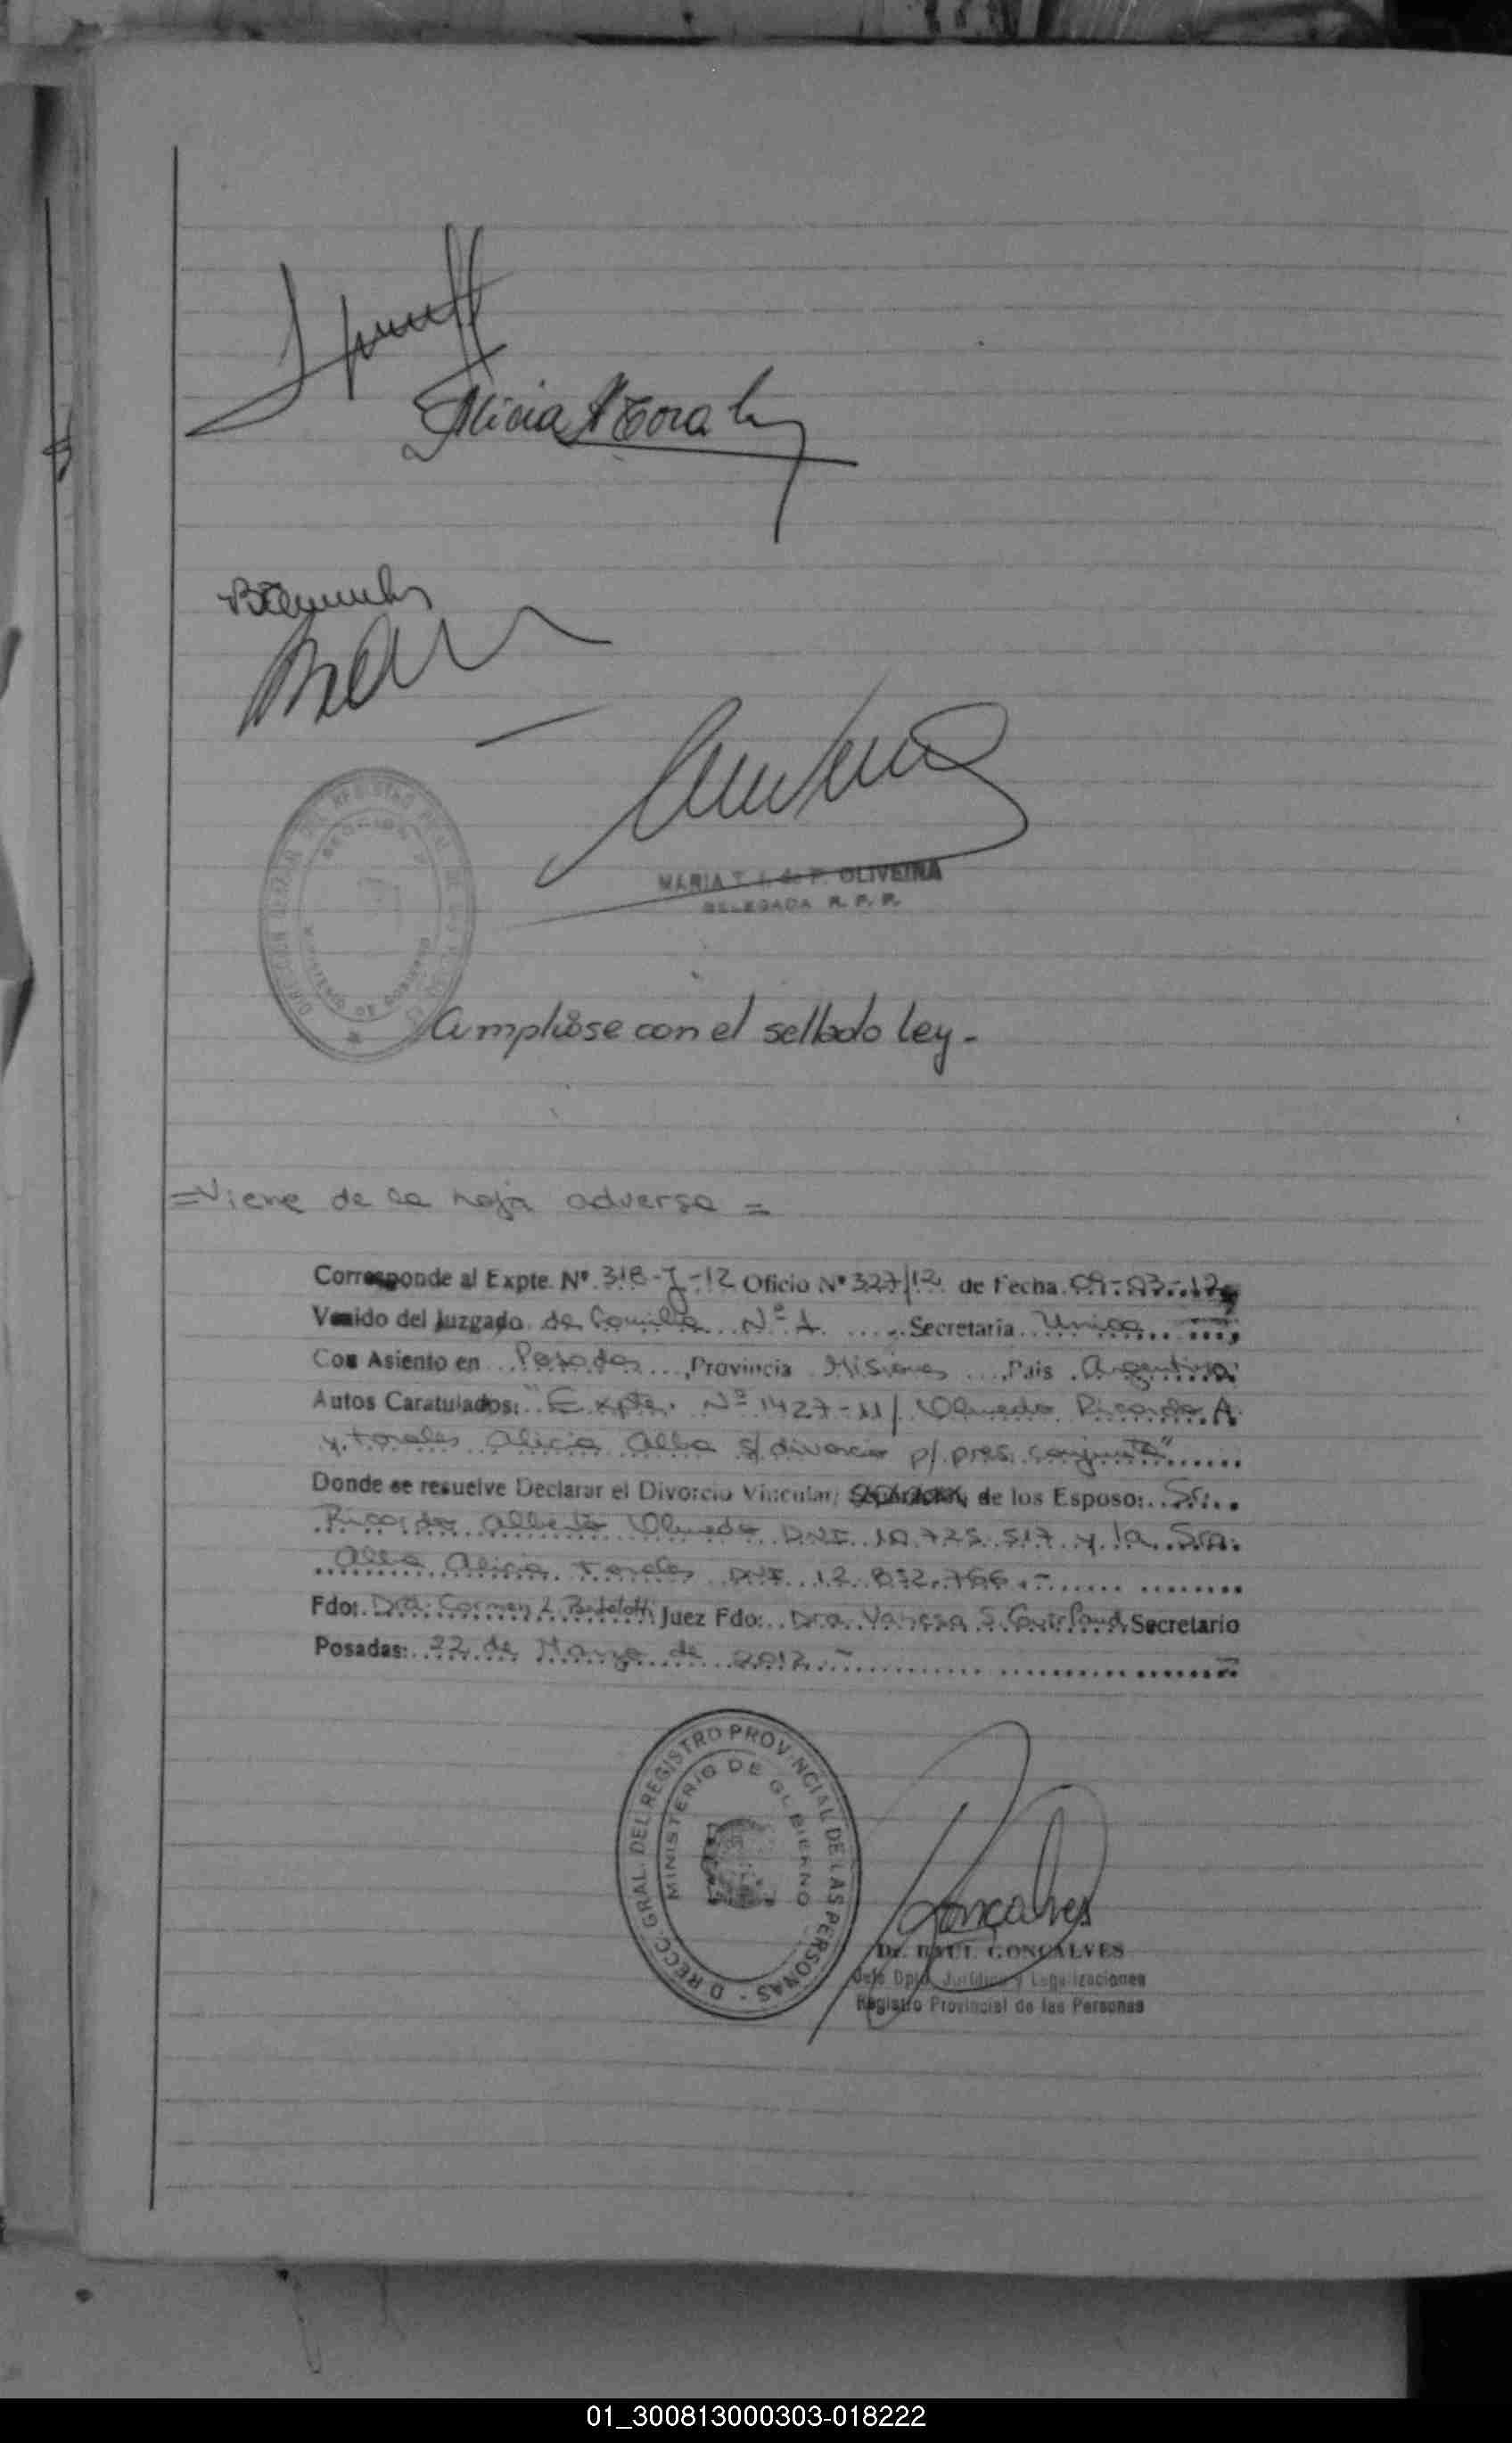 Alicia A Torales
MARIA T. I. de P. OLIVEIRA
DELEGADA R. P. P.
Cumpliose con el sellado ley.-
=Viene de la hoja adversa =
Corresponde al Expte. Nº 318-J-12 Oficio Nº 327/12 de Fecha 09-03-12
Venido del Juzgado de Familia Nº 1 Secretaria Unica
Con Asiento en Posadas, Provincia Misiones, Pais Argentina
Autos Caratulados: "Expte. Nº 1427-11/ Olmedo Ricardo A.
y Torales Alicia Alba s/ divorcio p/ pres. conjunta"
Donde se resuelve Declarar el Divorcio Vincular, de los Esposo: Sr.
Ricardo Alberto Olmedo DNI 10.725.517 y la Sra.
Alba Alicia Torales DNI 12.852.766.-
Fdo: Dra. Carmen L. Juez Fdo: Dra. Vanesa S. Secretario
Posadas: 22 de Marzo de 2012.-
DIRECC. GRAL. DEL REGISTRO PROVINCIAL DE LAS PERSONAS -
MINISTERIO DE GOBIERNO
Goncalves
Dr. RAUL GONCALVES
Jefe Dpto. Jurídico y Legalizaciones
Registro Provincial de las Personas
01_300813000303-018222